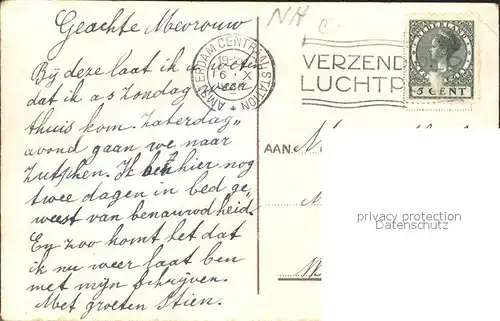 NH
Geachte Mevrouw
Bij deze laat ik U weten
dat ik a s Zondag weer
thuis kom. Zaterdag
avond gaan we naar
Zutphen. Ik ben hier nog
twee dagen in bed ge"
weest van benauwdheid.
En zoo komt het dat
ik nu weer laat ben
met mijn schrijven.
Met groeten Stien.
AMSTERDAM CENTRAALSTATION
6 X
VERZEND
LUCHTP
NEDERLAND
5 CENT
AAN
privacy protection
Datenschutz